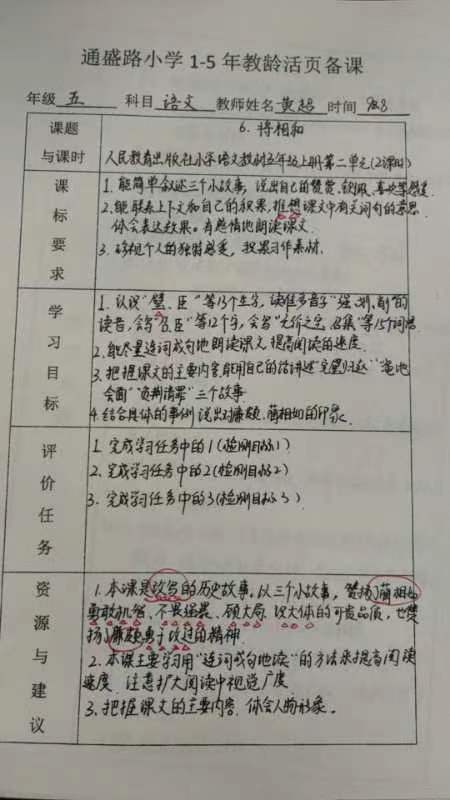 通盛路小学1-5年教龄活页备课
年级 五 科目 语文 教师姓名 黄超 时间 9.8
课题 6.将相和
与课时 人民教育出版社小学语文教材五年级上册第二单元(2课时)
课标要求
1.能简单叙述三个小故事,说出自己的赞赏、
2.能联系上下文和自己的积累,推想课文中有关词句的意思
体会表达效果。有感情地朗读课文
3.珍视个人的独特感受,积累习作素材.
学习目标
1.认识“璧、臣”等13个生字,读准多音字“强、划、削”的
读音,会写“召、臣”等12个字,会写“无价之宝、召集”等15个词语
2.能尽量连词成句地朗读课文,提高阅读的速度.
3.把握课文的主要内容,能用自己的话讲述“完璧归赵”“渑池
会面”“负荆请罪”三个故事
4.结合具体的事例说出对廉颇、蔺相如的印象.
评价任务
1.完成学习任务中的1(检测目标1)
2.完成学习任务中的2(检测目标2)
3.完成学习任务中的3(检测目标3)
资源与建议
1.本课是改写的历史故事.以三个小故事,赞扬了蔺相如
勇敢机智、不畏强暴、顾大局、识大体的可贵品质,也赞
扬了廉颇勇于改过的精神.
2.本课主要学习用“连词成句地读”的方法来提高阅读
速度.注意扩大阅读中视觉广度
3.把握课文的主要内容.体会人物形象。